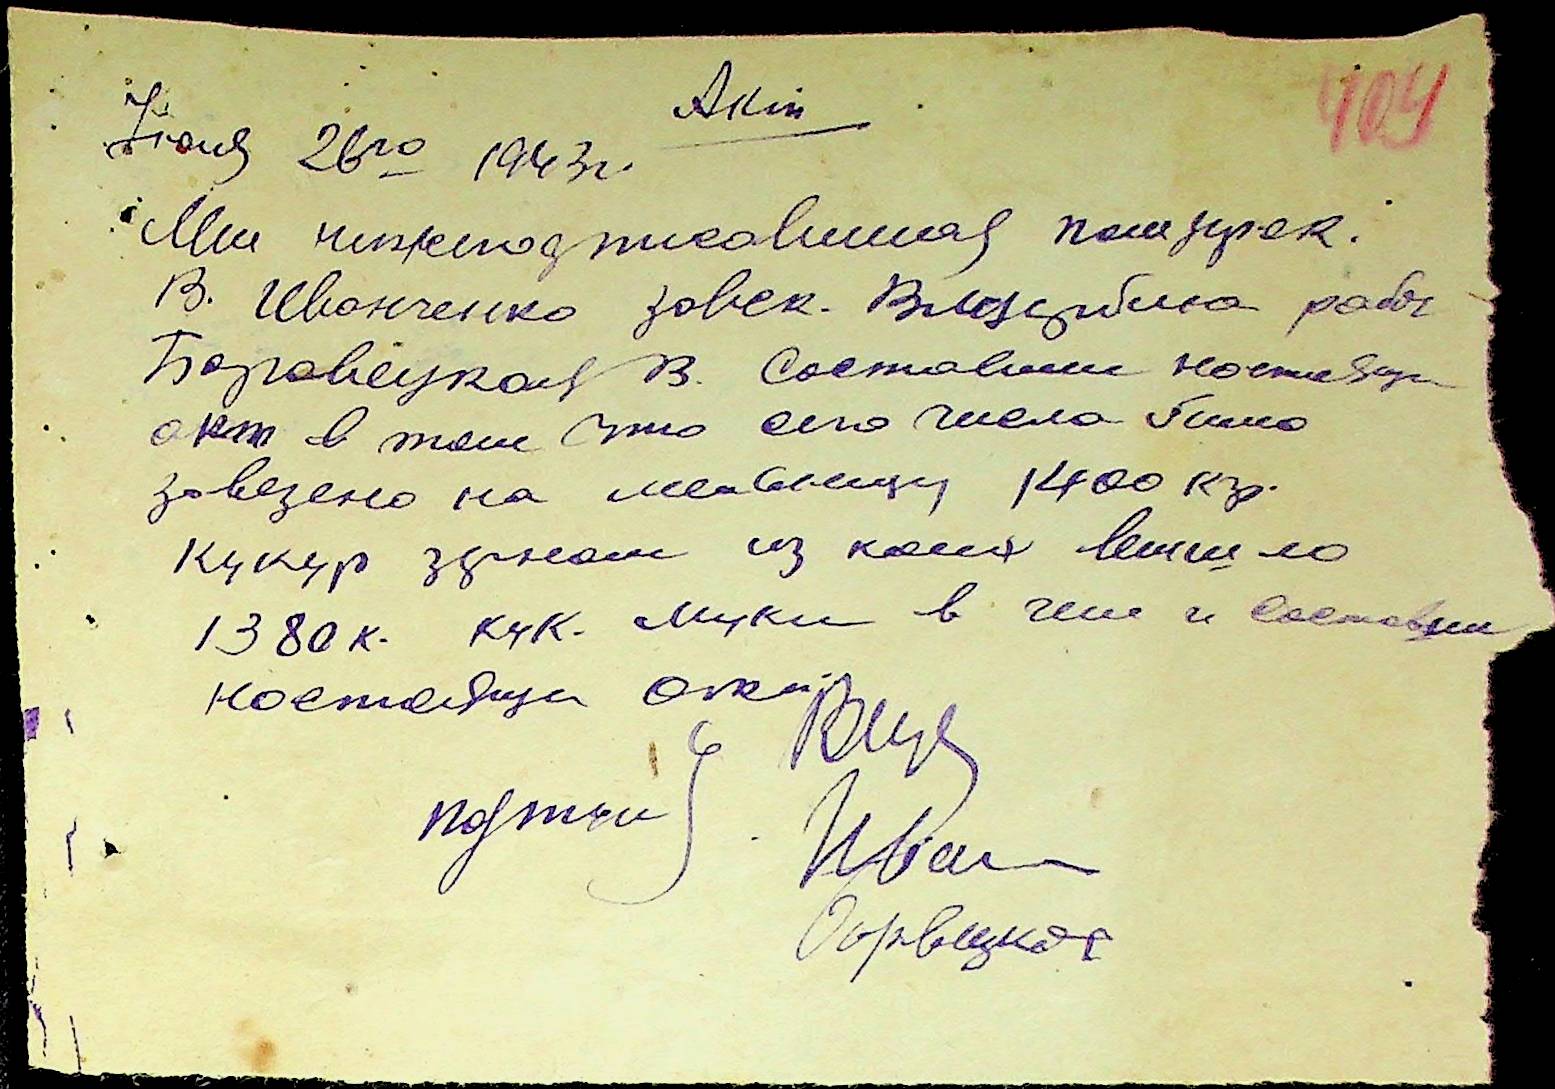 Акт
404
Июля 26го 1943г.
Мы нижеподписавшиая пом дирек.
В. Иванченко завск. рабоч
Боровецкая В. Составили ностоящи
акт в том что сего числа било
завезено на мельницу 1400 кг.
Кукур зрном из коия вышло
1380 к. кук. муки в чем и составили
ностоящи акт
подписи
Иван